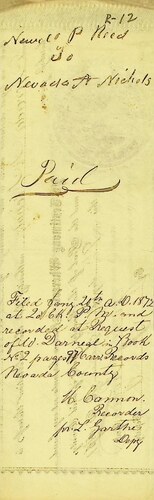 R-12
Newell P Reed
To
Nevada A Nichols
Paid
Filed Jany 26th A.D. 1872
at 2 o'clk P.M. and
recorded at Request
of W. Darneal in Book
No 2 page Marr Records
Nevada County
H Cannon
Recorder
pr L. Garthe
Depy